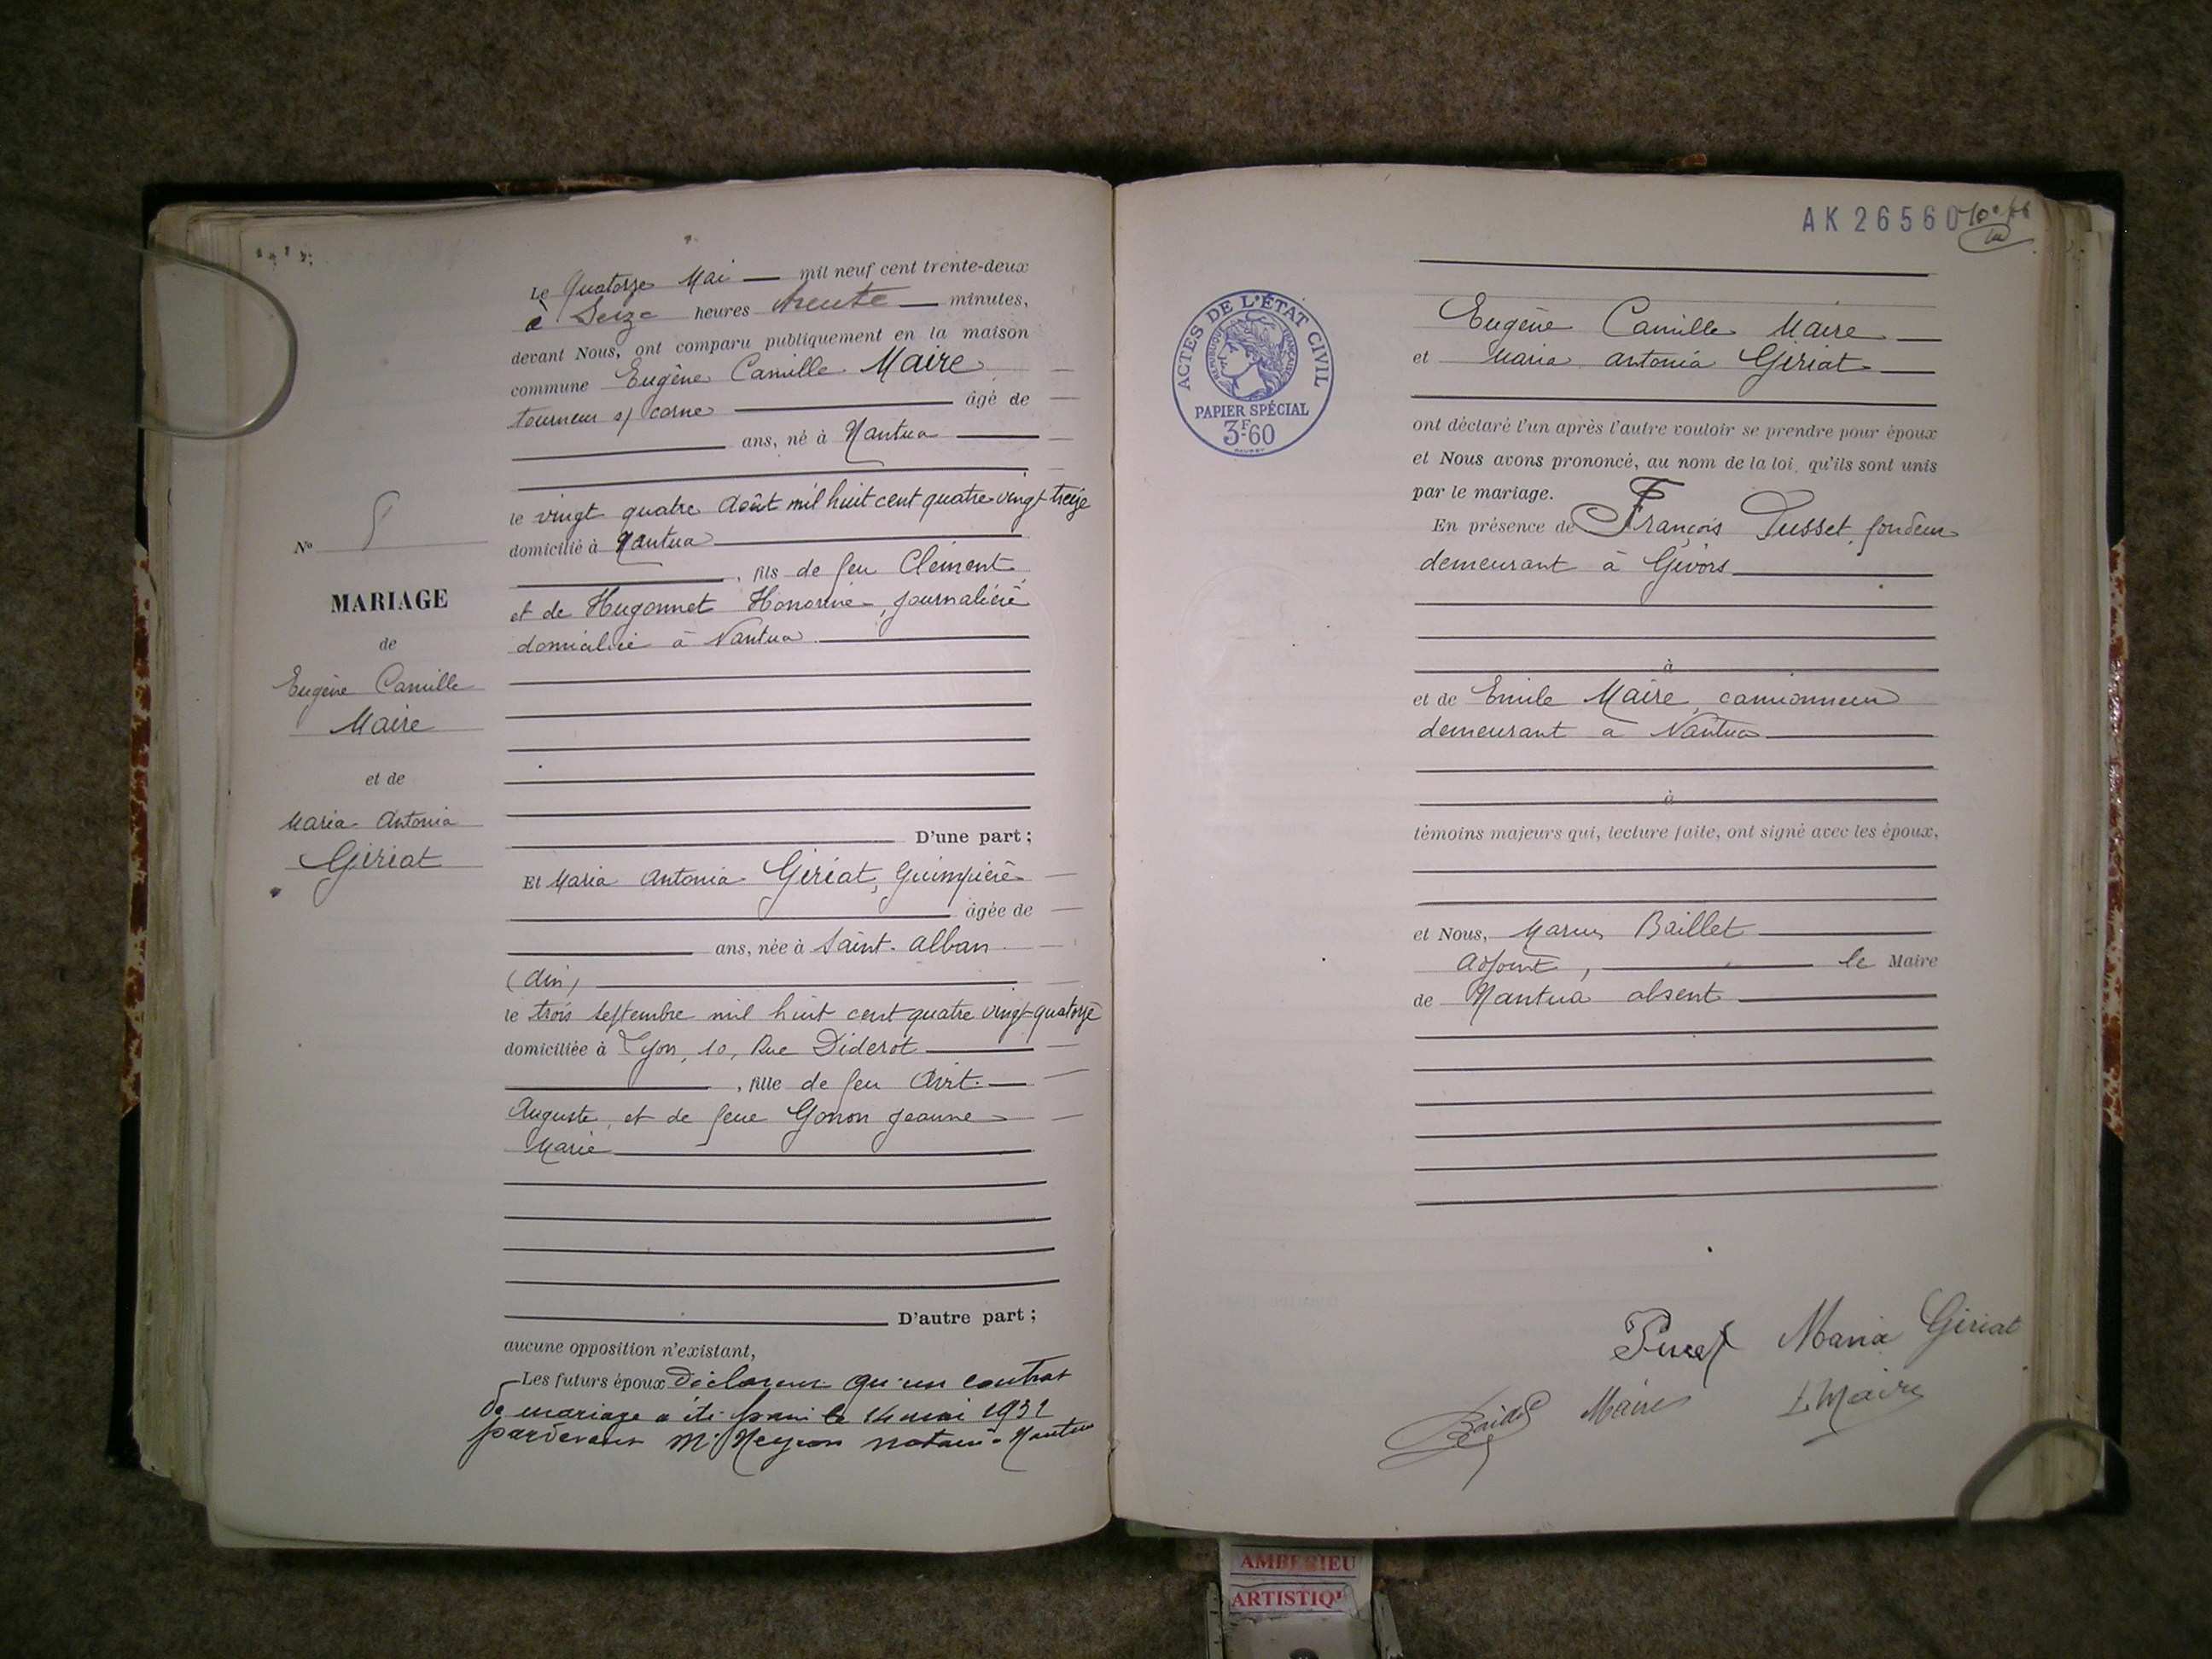 Le Quatorze Mai mil neuf cent trente-deux
à Seize heures trente minutes,
devant Nous, ont comparu publiquement en la maison
commune Eugène Camille Maire
tourneur s/ corne âgé de
ans, né à Nantua
le vingt quatre Août mil huit cent quatre-vingt treize
domicilié à Nantua
, fils de feu Clément
et de Hugonnet Honorine, journalière
domiciliée à Nantua
D'une part;
Et Maria Antonia Gériat, Guimpière
âgée de
ans, née à Saint-Alban
(Ain)
le trois septembre mil huit cent quatre vingt-quatorze
domiciliée à Lyon, 10, Rue Diderot
, fille de feu
Auguste, et de feue Gonon Jeanne
Marie
D'autre part;
aucune opposition n'existant,
Les futurs époux déclarent qu'un contrat
de mariage a été le 14 mai 1932
pardevant Me Neyron notaire à Nantua
No
MARIAGE
de
Eugène Camille
Maire
et de
Maria Antonia
Gériat
AK 26560
ACTES DE L'ÉTAT CIVIL
RÉPUBLIQUE FRANÇAISE
PAPIER SPÉCIAL
3F60
Eugène Camille Maire
et Maria Antonia Gériat
ont déclaré l'un après l'autre vouloir se prendre pour époux
et Nous avons prononcé, au nom de la loi, qu'ils sont unis
par le mariage.
En présence de François Pusset, fondeur
demeurant à Givors
à
et de Emile Maire, camionneur
demeurant à Nantua
à
témoins majeurs qui, lecture faite, ont signé avec les époux,
et Nous, Marius Baillet
Adjoint, le Maire
de Nantua absent
Maria Gériat
Maire
E. Maire
AMBERIEU
ARTISTIQU